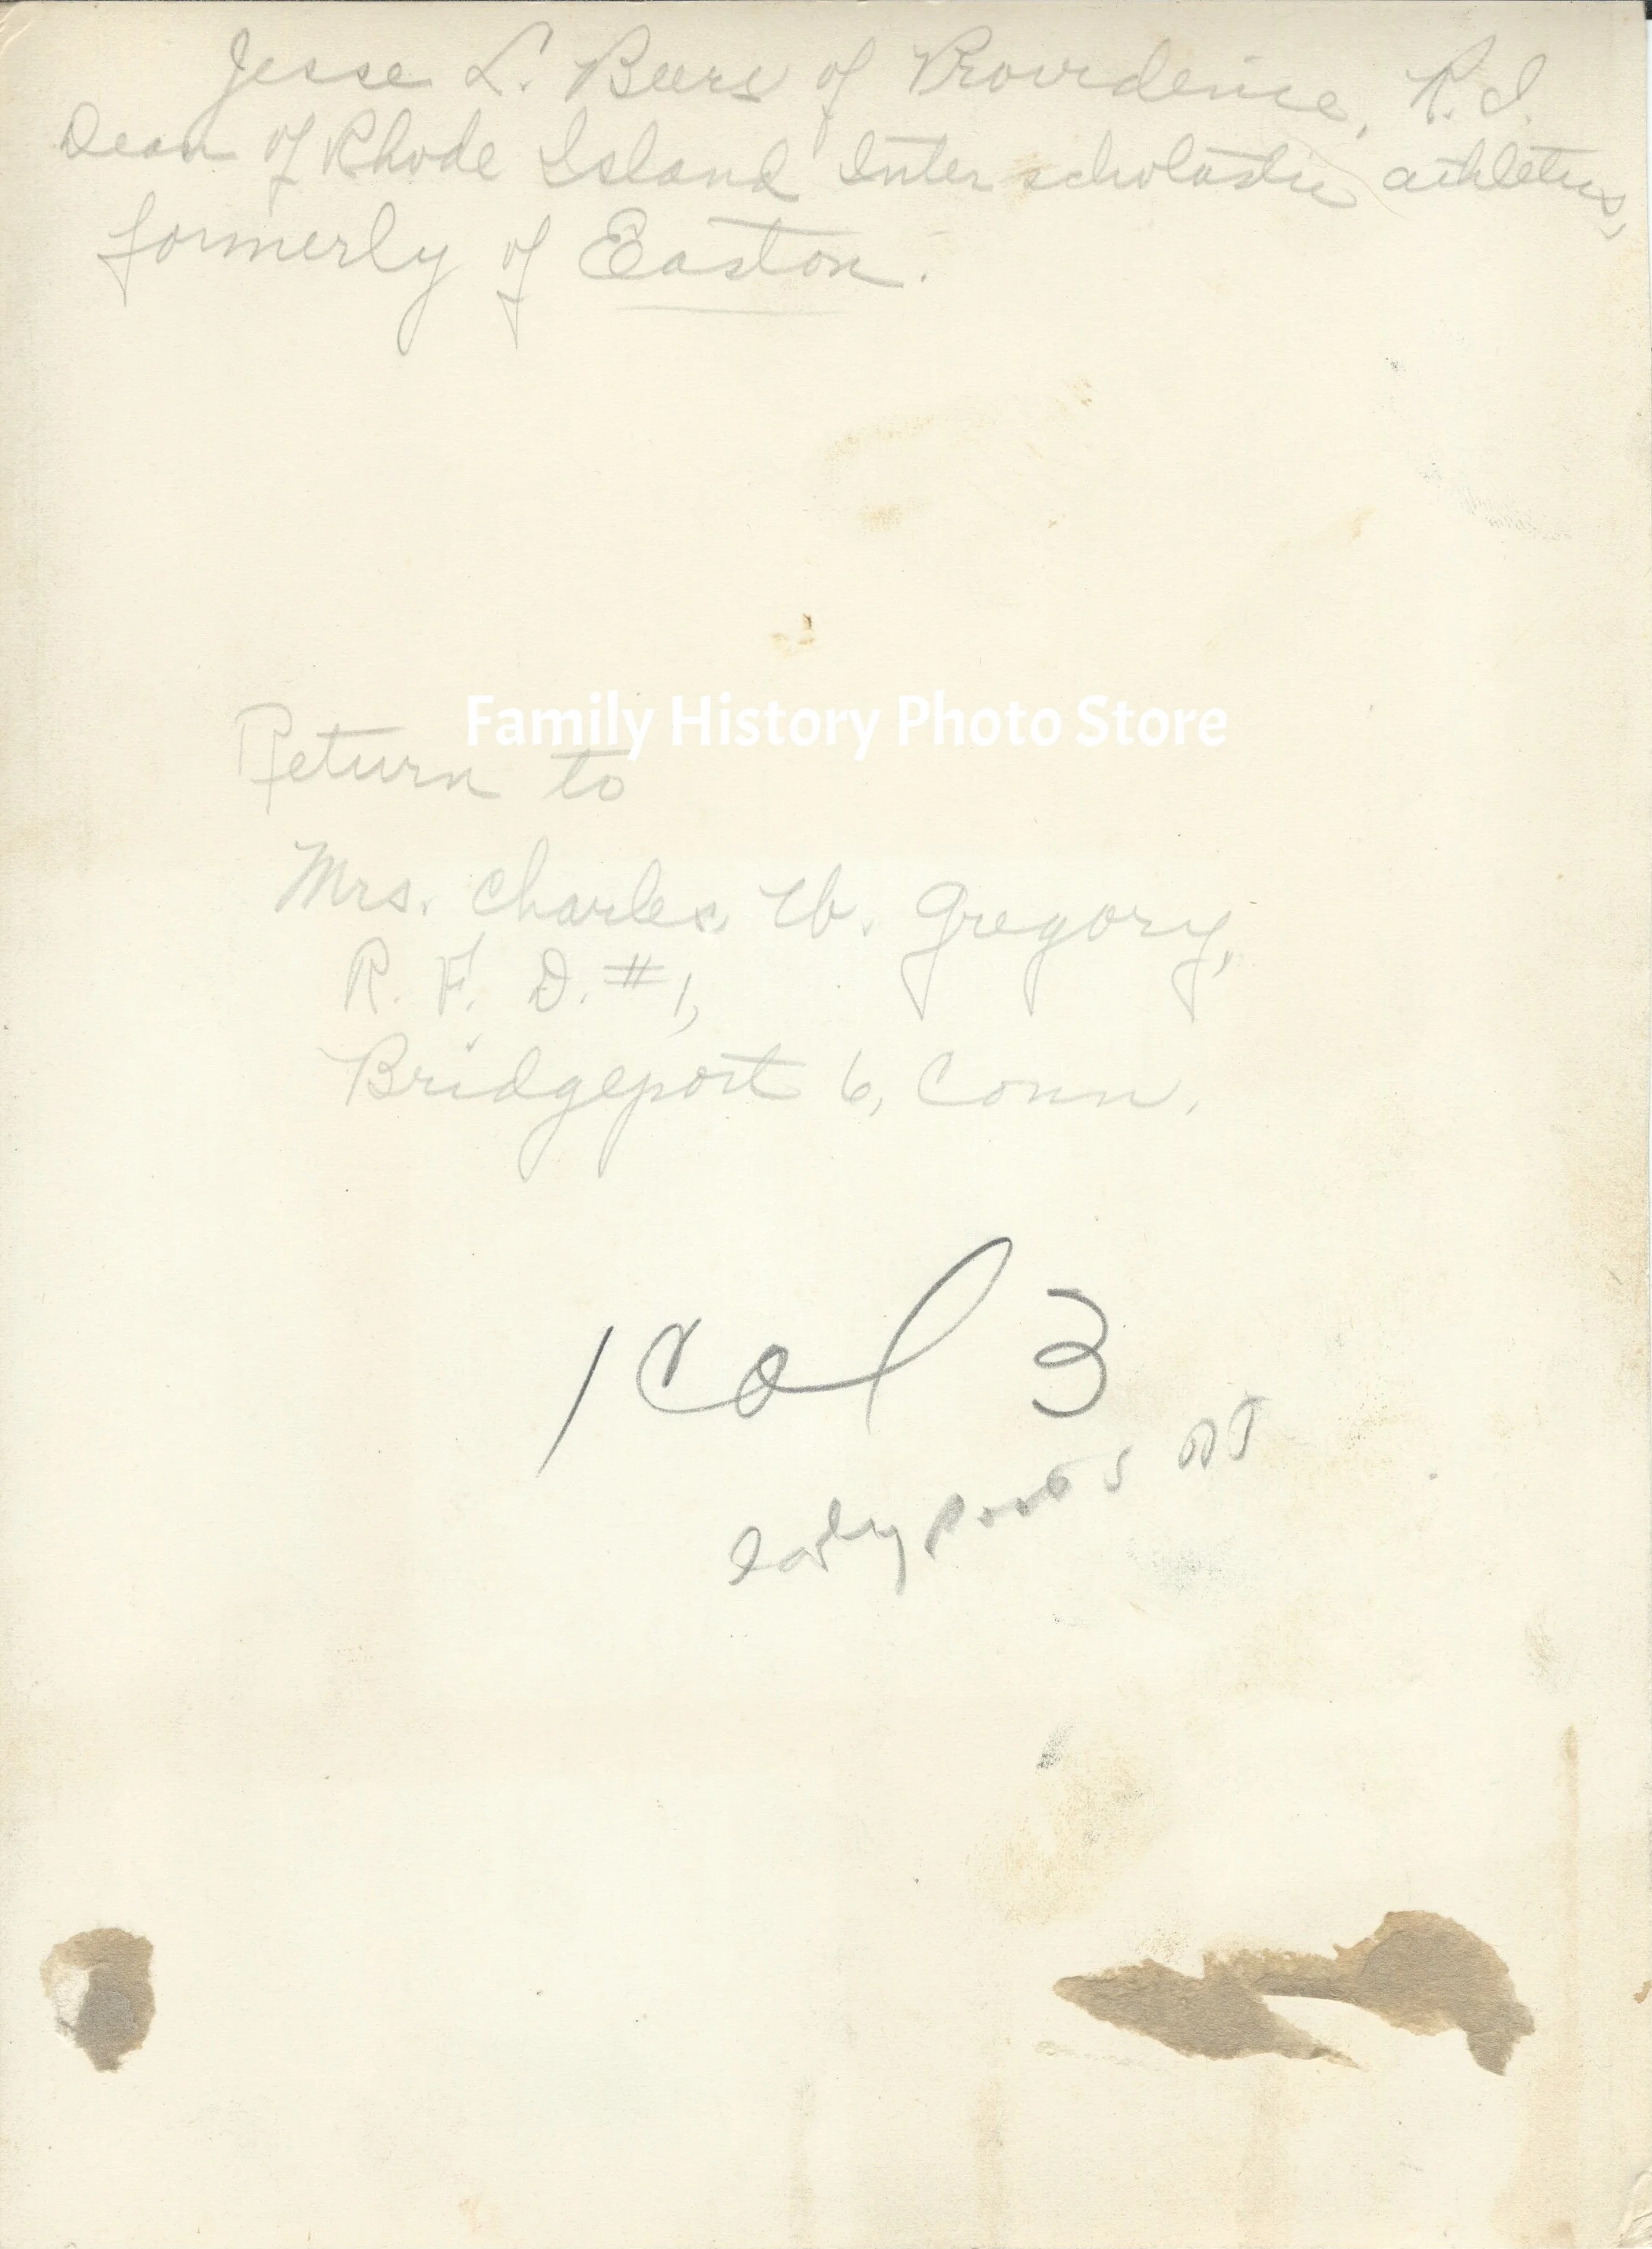 Jesse L. Beers of Providence, R.I.
Dean of Rhode Island Inter scholastic athletics,
formerly of Easton.
Family History Photo Store
Return to
Mrs. Charles W. Gregory,
R. F. D. #1,
Bridgeport 6, Conn.
1 Col 3